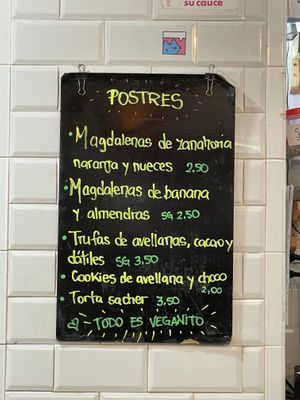 su cauce
POSTRES
• Magdalenas de zanahoria
naranja y nueces 2,50
• Magdalenas de banana
y almendras SG 2,50
• Trufas de avellanas, cacao y
dátiles SG 3,50
• Cookies de avellana y choco
2,00
• Torta sacher 3,50
TODO ES VEGANITO